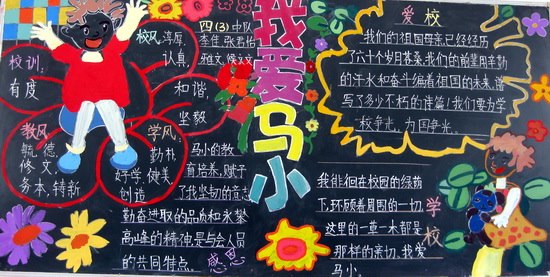 我爱马小
四(3)中队
校训:
有度
校风:淳厚、
认真、
和谐、
坚毅
教风:
毓德、
修文、
务本、特新
学风:
勤朴
好学 健美
创造
马小的教
育培养,赋予
了我坚韧的意志
勤奋进取的品质和永攀
高峰的精神,是与会人员
的共同特点。
感恩
爱校
我们的祖国母亲已经经历
了六十个岁月葚菜,我们的前辈用辛勤
的汗水和奋斗编着祖国的未来,谱
写了多少不朽的诗篇!我们要为学
校争光,为国争光。
我徘徊在校园的绿荫
下,环顾着周围的一切,
这里的一草一木都是
那样的亲切,我爱
马小。
学校